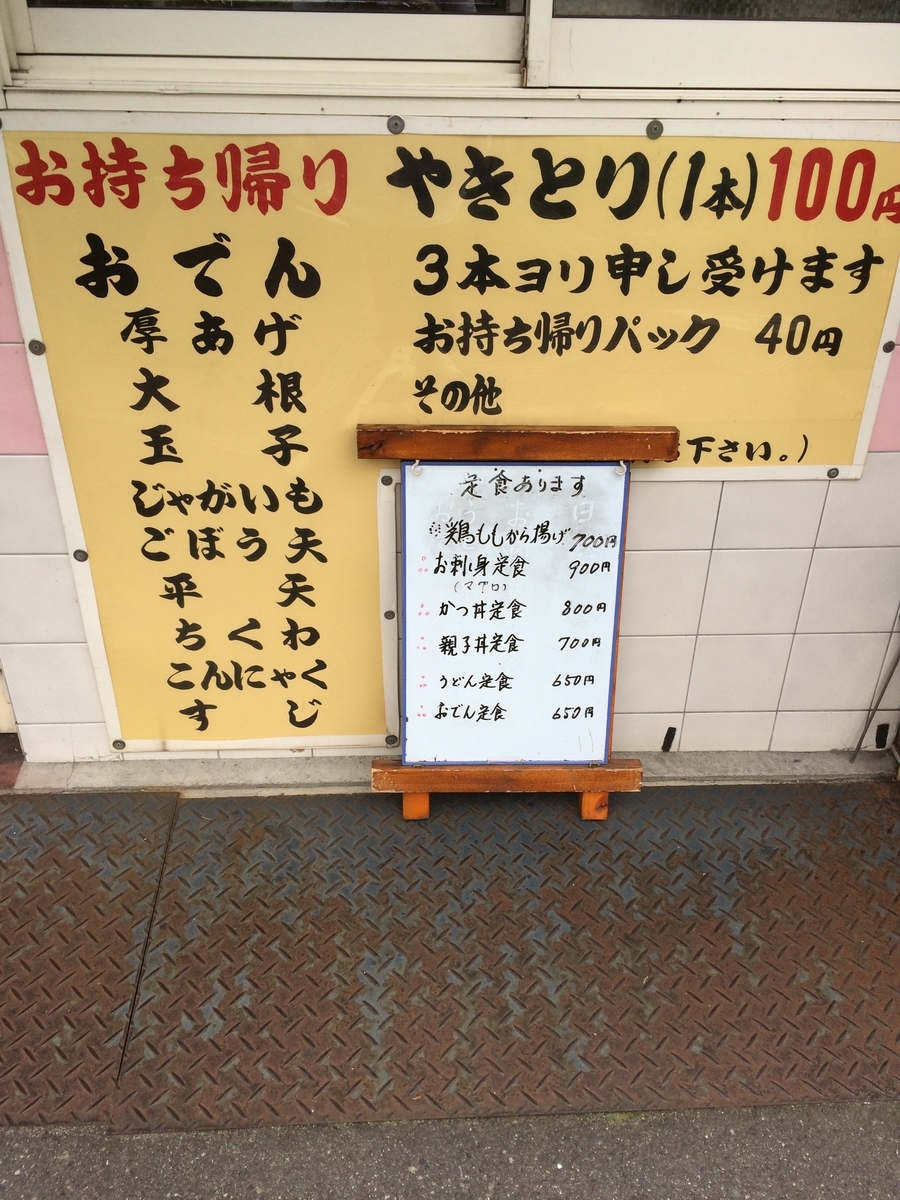 お持ち帰り
おでん
厚あげ
大根
玉子
じゃがいも
ごぼう天
平天
ちくわ
こんにゃく
すじ
やきとり(1本)100円
3本ヨリ申し受けます
お持ち帰りパック 40円
その他
下さい。)
定食あります
※鶏ももから揚げ 700円
お刺身定食 900円
(マグロ)
かつ丼定食 800円
親子丼定食 700円
うどん定食 650円
おでん定食 650円